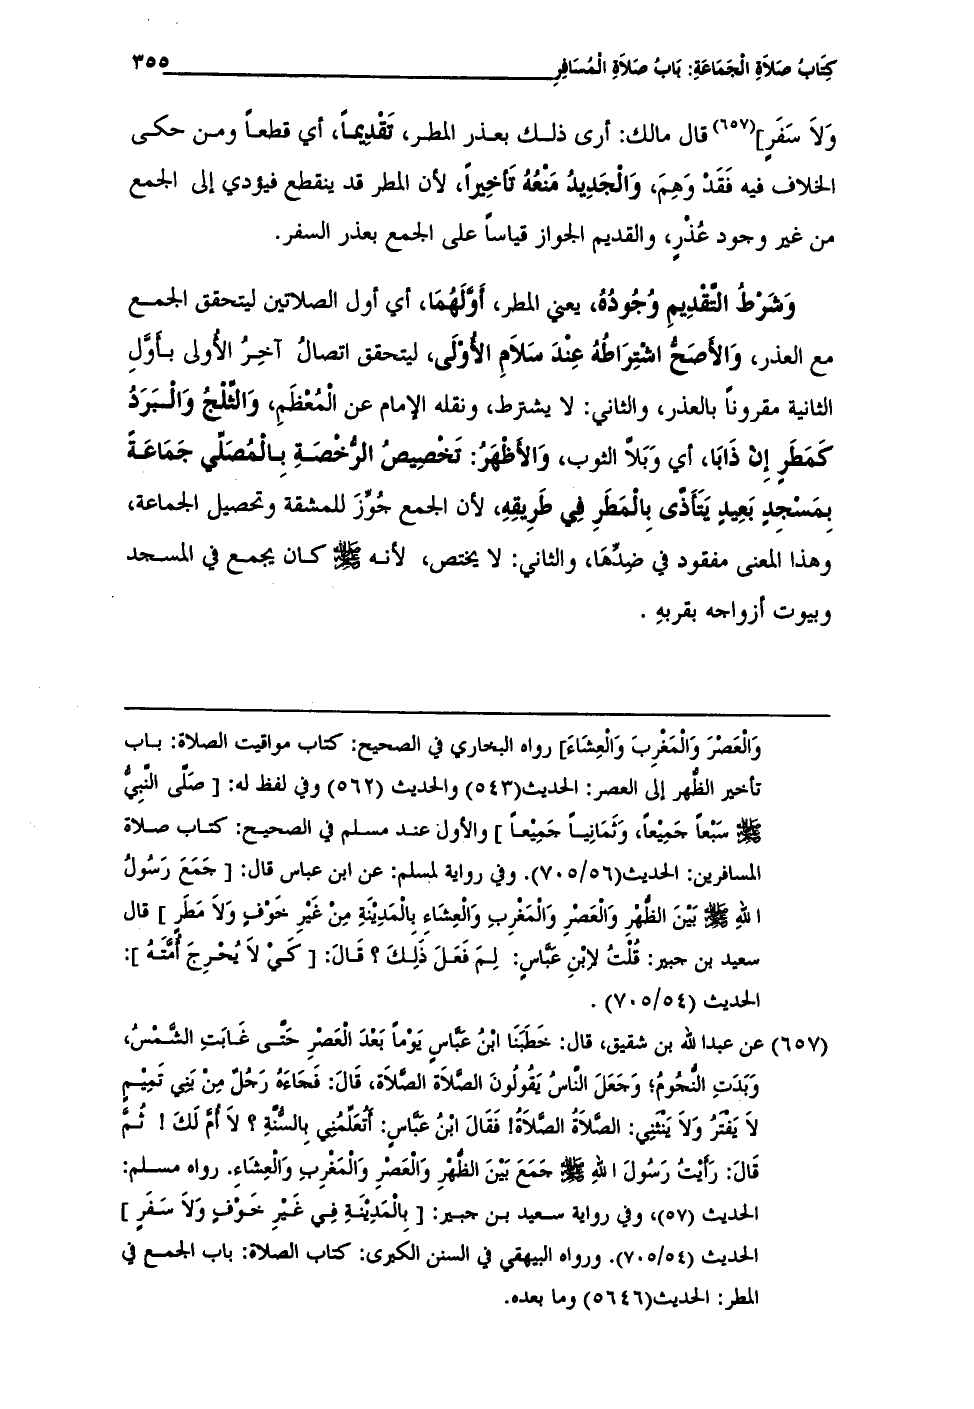 كِتَابُ صَلَاةِ الْجَمَاعَةِ: بَابُ صَلَاةِ الْمُسَافِرِ ٣٥٥
وَلاَ سَفَرٍ](٦٥٧) قال مالك: أرى ذلك بعذر المطر، تَقْدِيماً، أي قطعاً ومن حكى
الخلاف فيه فَقَدْ وَهِمَ، وَالْجَدِيدُ مَنْعُهُ تَأخِيراً، لأن المطر قد ينقطع فيؤدي إلى الجمع
من غير وجود عُذْرٍ، والقديم الجواز قياساً على الجمع بعذر السفر.
وَشَرْطُ التَّقْدِيمِ وُجُودُهُ، يعني المطر، أَوَّلَهُمَا، أي أول الصلاتين ليتحقق الجمع
مع العذر، وَالأَصَحُّ اشْتِرَاطُهُ عِنْدَ سَلاَمِ الأُوْلَى، ليتحقق اتصالُ آخِرُ الأُولى بأَوَّلِ
الثانية مقروناً بالعذر، والثاني: لا يشترط، ونقله الإمام عن الْمُعْظَمِ، وَالثَّلْجُ وَالْبَرَدُ
كَمَطَرٍ إِنْ ذَابَا، أي وَبَلاَّ الثوب، وَالأَظْهَرُ: تَخْصِيصُ الرُّخْصَةِ بِالْمُصَلِّي جَمَاعَةً
بِمَسْجِدٍ بَعِيدٍ يَتَأَذَّى بِالْمَطَرِ فِي طَرِيقِهِ، لأن الجمع جُوِّزَ للمشقة وتحصيل الجماعة،
وهذا المعنى مفقود في ضِدِّهَا، والثاني: لا يختص، لأنه ﷺ كان يجمع في المسجد
وبيوت أزواجه بقربهِ .
وَالْعَصْرَ وَالْمَغْرِبَ وَالْعِشَاءَ] رواه البخاري في الصحيح: كتاب مواقيت الصلاة: باب
تأخير الظُّهر إلى العصر: الحديث(٥٤٣) والحديث (٥٦٢) وفي لفظ له: [ صَلَّى النَّبِيُّ
ﷺ سَبْعاً جَمِيْعاً، وَثَمَانِيـاً جَمِيْعاً ] والأول عند مسلم في الصحيح: كتاب صلاة
المسافرين: الحديث(٧٠٥/٥٦). وفي رواية لمسلم: عن ابن عباس قال: [ جَمَعَ رَسُولُ
اللهِ ﷺ بَيْنَ الظُّهْرِ وَالْعَصْرِ وَالْمَغْرِبِ وَالْعِشَاءِ بِالْمَدِيْنَةِ مِنْ غَيْرِ خَوْفٍ وَلاَ مَطَرٍ ] قال
سعيد بن جبير: قُلْتُ لاِبْنِ عَبَّاسٍ: لِمَ فَعَلَ ذَلِكَ ؟ قَالَ: [ كَيْ لاَ يُحْرِجَ أُمَّتَهُ ]:
الحديث (٧٠٥/٥٤) .
(٦٥٧) عن عبدالله بن شقيق، قال: خَطَبَنَا ابْنُ عَبَّاسٍ يَوْماً بَعْدَ الْعَصْرِ حَتَّى غَابَتِ الشَّمْسُ،
وَبَدَتِ النُّجُومُ؛ وَجَعَلَ النَّاسُ يَقُولُونَ الصَّلاَةَ الصَّلاَةَ، قَالَ: فَجَاءَهُ رَجُلٌ مِنْ بَنِي تَمِيْمٍ
لاَ يَفْتَرُ وَلاَ يَنْثَنِي: الصَّلاَةُ الصَّلاَةُ! فَقَالَ ابْنُ عَبَّاسٍ: أَتُعَلِّمُنِي بِالسُّنَّةِ ؟ لاَ أُمَّ لَكَ ! ثُمَّ
قَالَ: رَأَيْتُ رَسُولَ اللهِ ﷺ جَمَعَ بَيْنَ الظُّهْرِ وَالْعَصْرِ وَالْمَغْرِبِ وَالْعِشَاءِ. رواه مسلم:
الحديث (٥٧)، وفي رواية سعيد بن جبير: [ بِالْمَدِيْنَةِ فِي غَيْرِ خَوْفٍ وَلاَ سَفَرٍ ]
الحديث (٧٠٥/٥٤). ورواه البيهقي في السنن الكبرى: كتاب الصلاة: باب الجمع في
المطر: الحديث(٥٦٤٦) وما بعده.